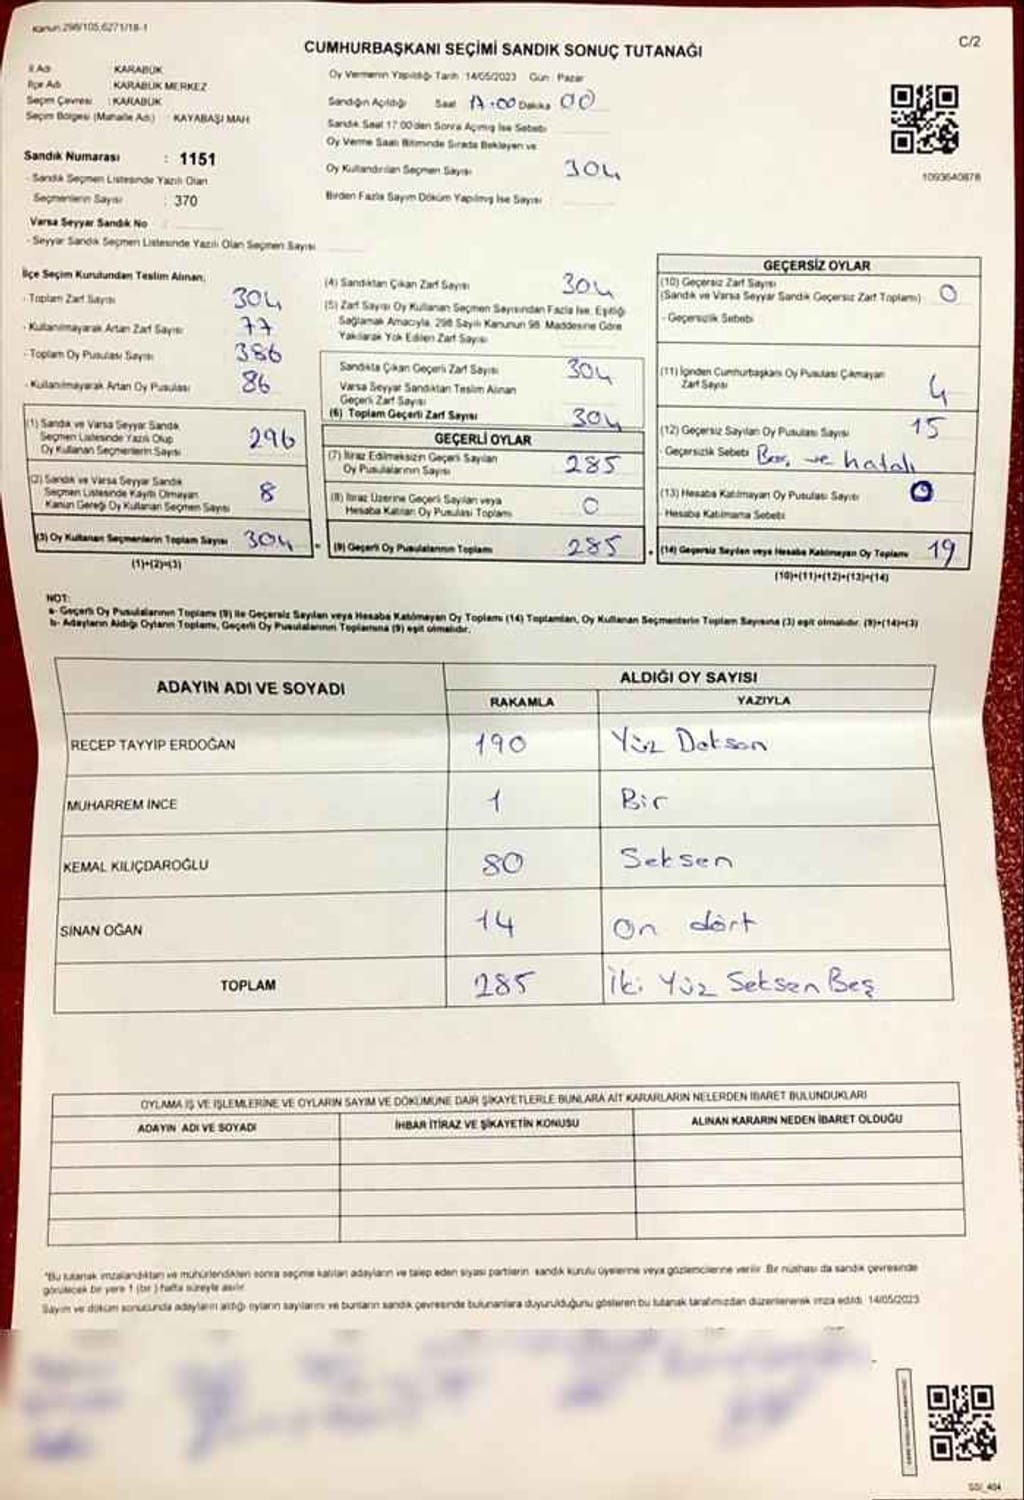 Kanun 298/105,6271/18-1
C/2
CUMHURBAŞKANI SEÇİMİ SANDIK SONUÇ TUTANAĞI
İl Adı : KARABÜK
İlçe Adı : KARABÜK MERKEZ
Seçim Çevresi : KARABÜK
Seçim Bölgesi (Mahalle Adı) : KAYABAŞI MAH
Sandık Numarası : 1151
- Sandık Seçmen Listesinde Yazılı Olan
Seçmenlerin Sayısı : 370
Varsa Seyyar Sandık No
- Seyyar Sandık Seçmen Listesinde Yazılı Olan Seçmen Sayısı
Oy Vermenin Yapıldığı Tarih : 14/05/2023 Gün : Pazar
Sandığın Açıldığı Saat 17.00 Dakika 00
Sandık Saat 17:00'den Sonra Açılmış İse Sebebi
Oy Verme Saati Bitiminde Sırada Bekleyen ve
Oy Kullandırılan Seçmen Sayısı 304
Birden Fazla Sayım Döküm Yapılmış İse Sayısı
1093640878
İlçe Seçim Kurulundan Teslim Alınan;
- Toplam Zarf Sayısı 304
- Kullanılmayarak Artan Zarf Sayısı 77
- Toplam Oy Pusulası Sayısı 386
- Kullanılmayarak Artan Oy Pusulası 86
(1) Sandık ve Varsa Seyyar Sandık
Seçmen Listesinde Yazılı Olup
Oy Kullanan Seçmenlerin Sayısı 296
(2) Sandık ve Varsa Seyyar Sandık
Seçmen Listesinde Kayıtlı Olmayan
Kanun Gereği Oy Kullanan Seçmen Sayısı 8
(3) Oy Kullanan Seçmenlerin Toplam Sayısı 304
(1)+(2)=(3)
(4) Sandıktan Çıkan Zarf Sayısı 304
(5) Zarf Sayısı Oy Kullanan Seçmen Sayısından Fazla İse, Eşitliği
Sağlamak Amacıyla, 298 Sayılı Kanunun 98. Maddesine Göre
Yakılarak Yok Edilen Zarf Sayısı
Sandıkta Çıkan Geçerli Zarf Sayısı 304
Varsa Seyyar Sandıktan Teslim Alınan
Geçerli Zarf Sayısı
(6) Toplam Geçerli Zarf Sayısı 304
GEÇERLİ OYLAR
(7) İtiraz Edilmeksizin Geçerli Sayılan
Oy Pusulalarının Sayısı 285
(8) İtiraz Üzerine Geçerli Sayılan veya
Hesaba Katılan Oy Pusulası Toplamı 0
(9) Geçerli Oy Pusulalarının Toplamı 285
GEÇERSİZ OYLAR
(10) Geçersiz Zarf Sayısı
(Sandık ve Varsa Seyyar Sandık Geçersiz Zarf Toplamı) 0
- Geçersizlik Sebebi
(11) İçinden Cumhurbaşkanı Oy Pusulası Çıkmayan
Zarf Sayısı 4
(12) Geçersiz Sayılan Oy Pusulası Sayısı 15
- Geçersizlik Sebebi Boş, ve hatalı
(13) Hesaba Katılmayan Oy Pusulası Sayısı 0
- Hesaba Katılmama Sebebi
(14) Geçersiz Sayılan veya Hesaba Katılmayan Oy Toplamı 19
(10)+(11)+(12)+(13)=(14)
NOT:
a- Geçerli Oy Pusulalarının Toplamı (9) ile Geçersiz Sayılan veya Hesaba Katılmayan Oy Toplamı (14) Toplamları, Oy Kullanan Seçmenlerin Toplam Sayısına (3) eşit olmalıdır. (9)+(14)=(3)
b- Adayların Aldığı Oyların Toplamı, Geçerli Oy Pusulalarının Toplamına (9) eşit olmalıdır.
ADAYIN ADI VE SOYADI
ALDIĞI OY SAYISI
RAKAMLA YAZIYLA
RECEP TAYYİP ERDOĞAN 190 Yüz Doksan
MUHARREM İNCE 1 Bir
KEMAL KILIÇDAROĞLU 80 Seksen
SİNAN OĞAN 14 On dört
TOPLAM 285 İki Yüz Seksen Beş
OYLAMA İŞ VE İŞLEMLERİNE VE OYLARIN SAYIM VE DÖKÜMÜNE DAİR ŞİKAYETLERLE BUNLARA AİT KARARLARIN NELERDEN İBARET BULUNDUKLARI
ADAYIN ADI VE SOYADI İHBAR İTİRAZ VE ŞİKAYETİN KONUSU ALINAN KARARIN NEDEN İBARET OLDUĞU
*Bu tutanak imzalandıktan ve mühürlendikten sonra seçime katılan adayların ve talep eden siyasi partilerin sandık kurulu üyelerine veya gözlemcilerine verilir. Bir nüshası da sandık çevresinde
görülecek bir yere 1 (bir) hafta süreyle asılır.
Sayım ve döküm sonucunda adayların aldığı oyların sayılarını ve bunların sandık çevresinde bulunanlara duyurulduğunu gösteren bu tutanak tarafımızdan düzenlenerek imza edildi. 14/05/2023